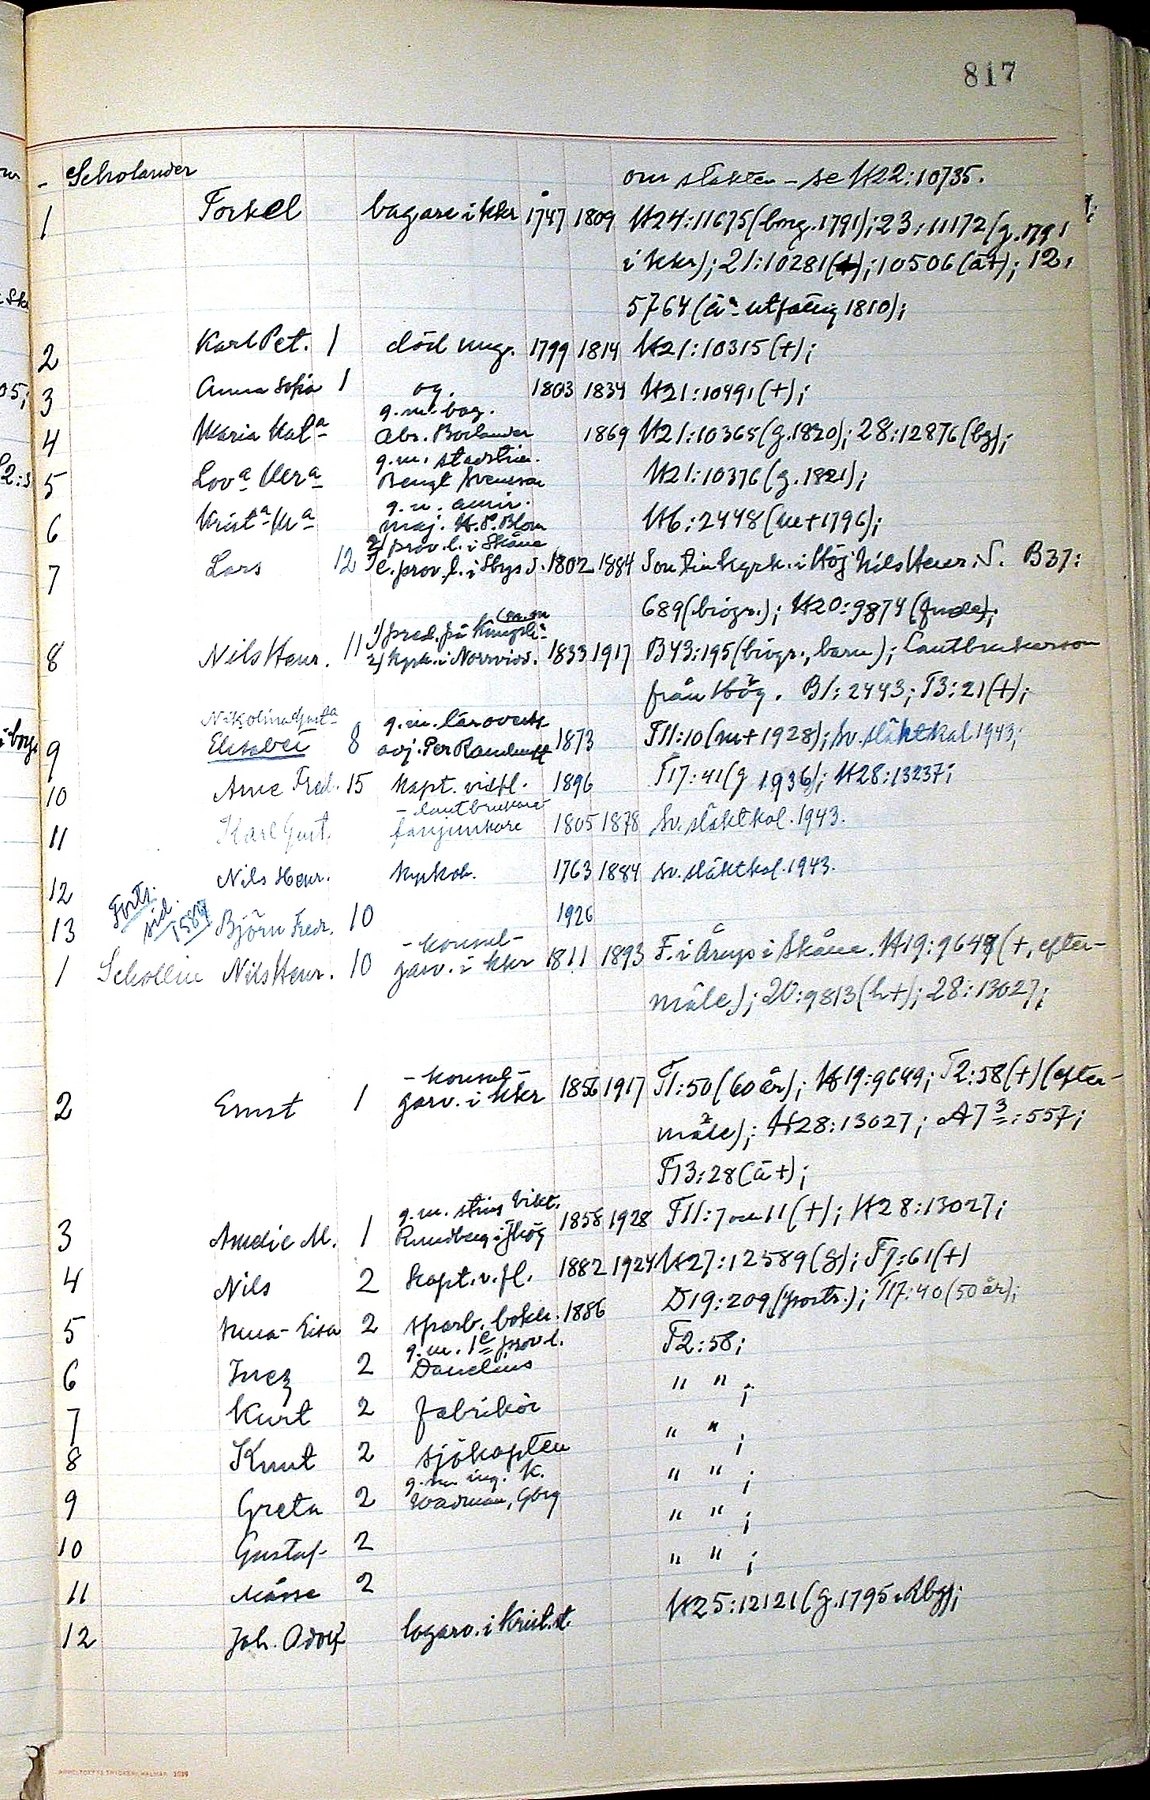 817
- Scholander om släkten - se K22:10735.
1 Torkel bagare i kkr 1747 1809 K24:11675 (borg. 1791); 23:11172 (g. 1791
i kkr); 21:10281 (+); 10506 (ä+); 12:
5764 (ä utfattig 1810);
2 Karl Pet. 1 död ung. 1799 1814 K21:10315 (+);
3 Anna Sofia 1 og. 1803 1834 K21:10491 (+);
g.m. bag.
4 Maria Kat:a Abr. Borlander 1869 K21:10365 (g. 1820); 28:12876 (bg);
g.m. stadstim.
5 Lov:a Ulr:a Bengt Svensson K21:10376 (g. 1821);
g.m. amir.
6 Krist:a Ma maj. K.P. Blom K6:2448 (m+1796);
2/ prov.l. i Skåne
7 Lars 12 1/ e. prov.l. i Skgs d. 1802 1884 Son till kyrk. i Hög Nils Henr. S. B37:
689 (biogr.); K20:9874
1/ pred. på Kungsh:
8 Nils Henr. 11 2/ kyrk. i Norrvidi. 1833 1917 B43:195 (biogr., barn); Lantbrukarson
från Hög. B1:2443; T3:21 (+);
Nikolina Gust:a g.m. läroverks
9 Elisabet 8 adj. Per Randmatt 1873 T11:10 (m+1928); Sv. släktkal 1943;
10 Arne Fred. 15 kapt. vid fl. 1896 T17:41 (g 1936); K28:13237;
- lantbrukare
11 Karl Gust. fanjunkare 1805 1878 Sv. släktkal. 1943.
12 Nils Henr. kyrkoh. 1763 1884 sv. släktkal. 1943.
Forts. sid. 1584
13 Björn Fredr. 10 1926
- konsul -
1 Schollin Nils Henr. 10 garv. i kkr 1811 1893 F. i Årup i Skåne. K19:9649 (+, efter-
mäle); 20:9813 (h+); 28:13027;
- konsul -
2 Ernst 1 garv. i kkr 1856 1917 T1:50 (60 år); K19:9649; T2:58 (+) (efter-
mäle); K28:13027; A7 3:557;
T13:28 (ä+);
g.m. stins Vikt.
3 Amelie M. 1 Rundberg i Jhög 1858 1928 T11:7 o 11 (+); K28:13027;
4 Nils 2 Kapt. v. fl. 1882 1924 K27:12589 (g); T7:61 (+)
5 Anna-Lisa 2 sparb. bokh. 1886 D19:209 (portr.); T17:40 (50 år);
g.m. 1e prov.l.
6 Inez 2 Danelius T2:58;
7 Kurt 2 fabrikör " " ;
8 Knut 2 sjökapten " " ;
g.m. ing. K.
9 Greta 2 Wadman, Gbrg " " ;
10 Gustaf 2 " " ;
11 Måsse 2 " " ;
12 Joh. Adolf logarv. i Krist.st. K25:12121 (g. 1795 i Rby);